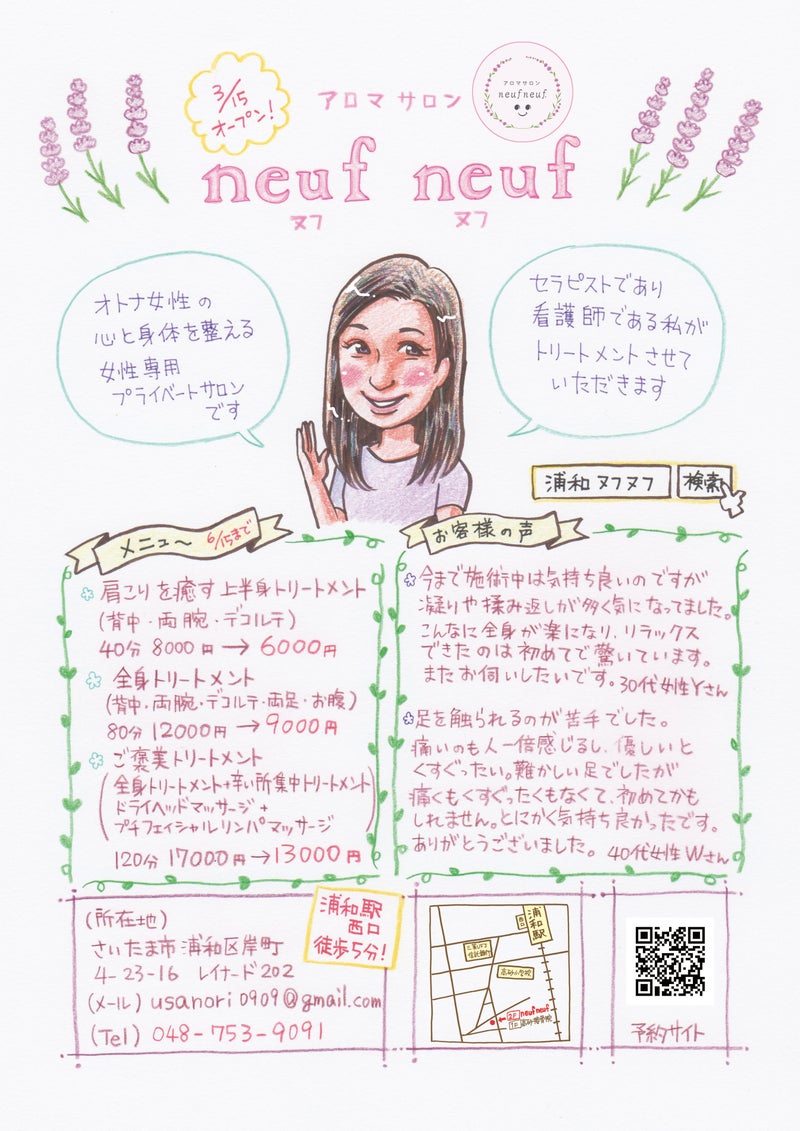 3/15
オープン!
アロマ サロン
アロマサロン
neuf neuf.
neuf neuf
ヌフ ヌフ
オトナ女性の
心と身体を整える
女性専用
プライベートサロン
です
セラピストであり
看護師である私が
トリートメントさせて
いただきます
浦和 ヌフヌフ 検索
メニュ〜 6/15まで
肩こりを癒す上半身トリートメント
(背中・両腕・デコルテ)
40分 8000円→6000円
全身トリートメント
(背中・両腕・デコルテ・両足・お腹)
80分 12000円→9000円
ご褒美トリートメント
(全身トリートメント+辛い所集中トリートメント
ドライヘッドマッサージ+
プチフェイシャルリンパマッサージ)
120分 17000円→13000円
お客様の声
今まで施術中は気持ち良いのですが
凝りや揉み返しが多く気になってました。
こんなに全身が楽になり、リラックス
できたのは初めてで驚いています。
またお伺いしたいです。30代女性Yさん
足を触られるのが苦手でした。
痛いのも人一倍感じるし、優しいと
くすぐったい。難かしい足でしたが
痛くもくすぐったくもなくて、初めてかも
しれません。とにかく気持ち良かったです。
ありがとうございました。40代女性Wさん
(所在地)
さいたま市浦和区岸町
4-23-16 レイナード202
(メール) usanori0909@gmail.com
(Tel) 048-753-9091
浦和駅
西口
徒歩5分!
浦和駅
西口
高砂小学校
2F neufneuf
予約サイト